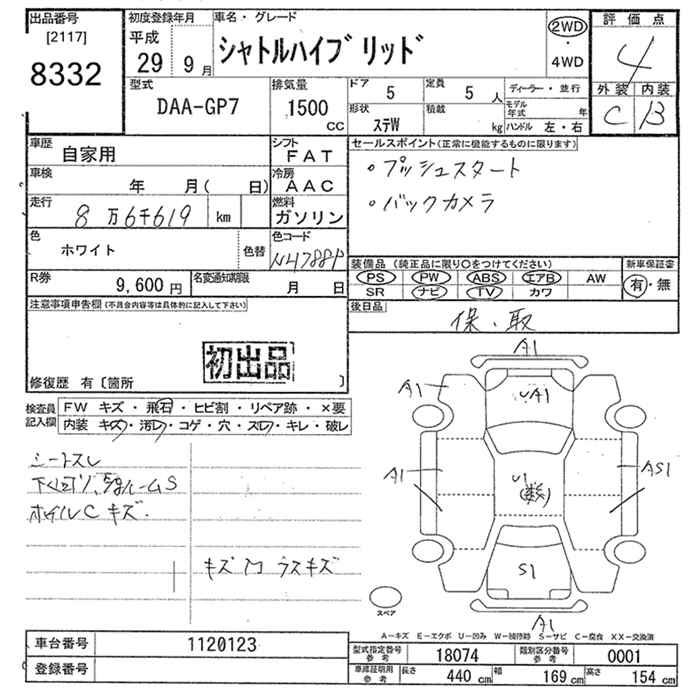 出品番号
[2117]
8332
初度登録年月
平成
29年 9月
車名・グレード
シャトルハイブリッド
2WD
・
4WD
評価点
4
外装 内装
C B
型式
DAA-GP7
排気量
1500
cc
ドア 5
定員 5人
ディーラー・並行
形状 ステW
積載 kg
モデル年式 年
ハンドル 左・右
車歴 自家用
シフト FAT
車検 年 月( 日)
冷房 AAC
走行 8万6千619 km
燃料 ガソリン
色 ホワイト 色替
色コード NH788P
R券 9,600円
名変通知期限 月 日
セールスポイント(正常に機能するものに限ります)
・プッシュスタート
・バックカメラ
装備品(純正品に限り○をつけてください)
新車保証書
PS PW ABS エアB AW
SR ナビ TV カワ
有・無
後日品
保・取
注意事項申告欄(不具合内容等は具体的に記入して下さい)
初出品
修復歴 有〔箇所 〕
検査員記入欄
FW キズ・飛石・ヒビ割・リペア跡・×要
内装 キズ・汚レ・コゲ・穴・スレ・キレ・破レ
シートスレ
下回りソ、S
ホイルC キズ.
キズ ウスキズ
A1
A1
UA1
A1
A1
AS1
U1
(数)
S1
A1
スペア
A-キズ E-エクボ U-凹み W-補修跡 S-サビ C-腐食 XX-交換済
車台番号 1120123
登録番号
型式指定番号 参考 18074
類別区分番号 参考 0001
車庫証明用 参考
長さ 440 cm
幅 169 cm
高さ 154 cm